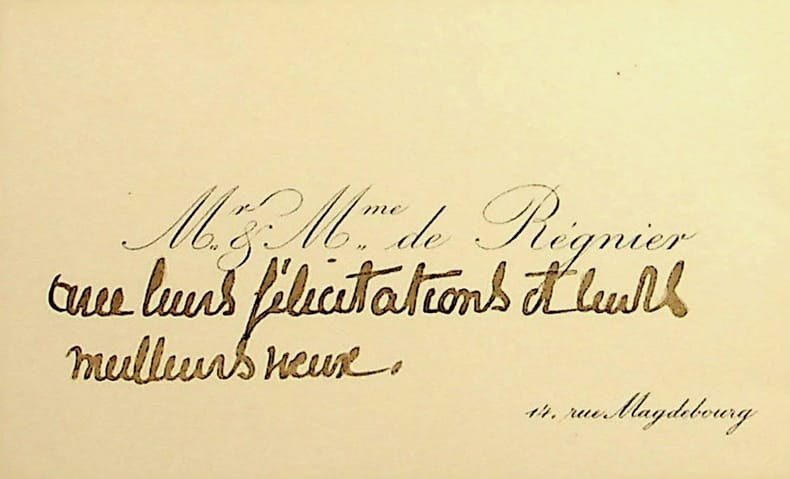 Mr. & Mme. de Régnier
avec leurs félicitations et leurs
meilleurs vœux.
14. rue Magdebourg